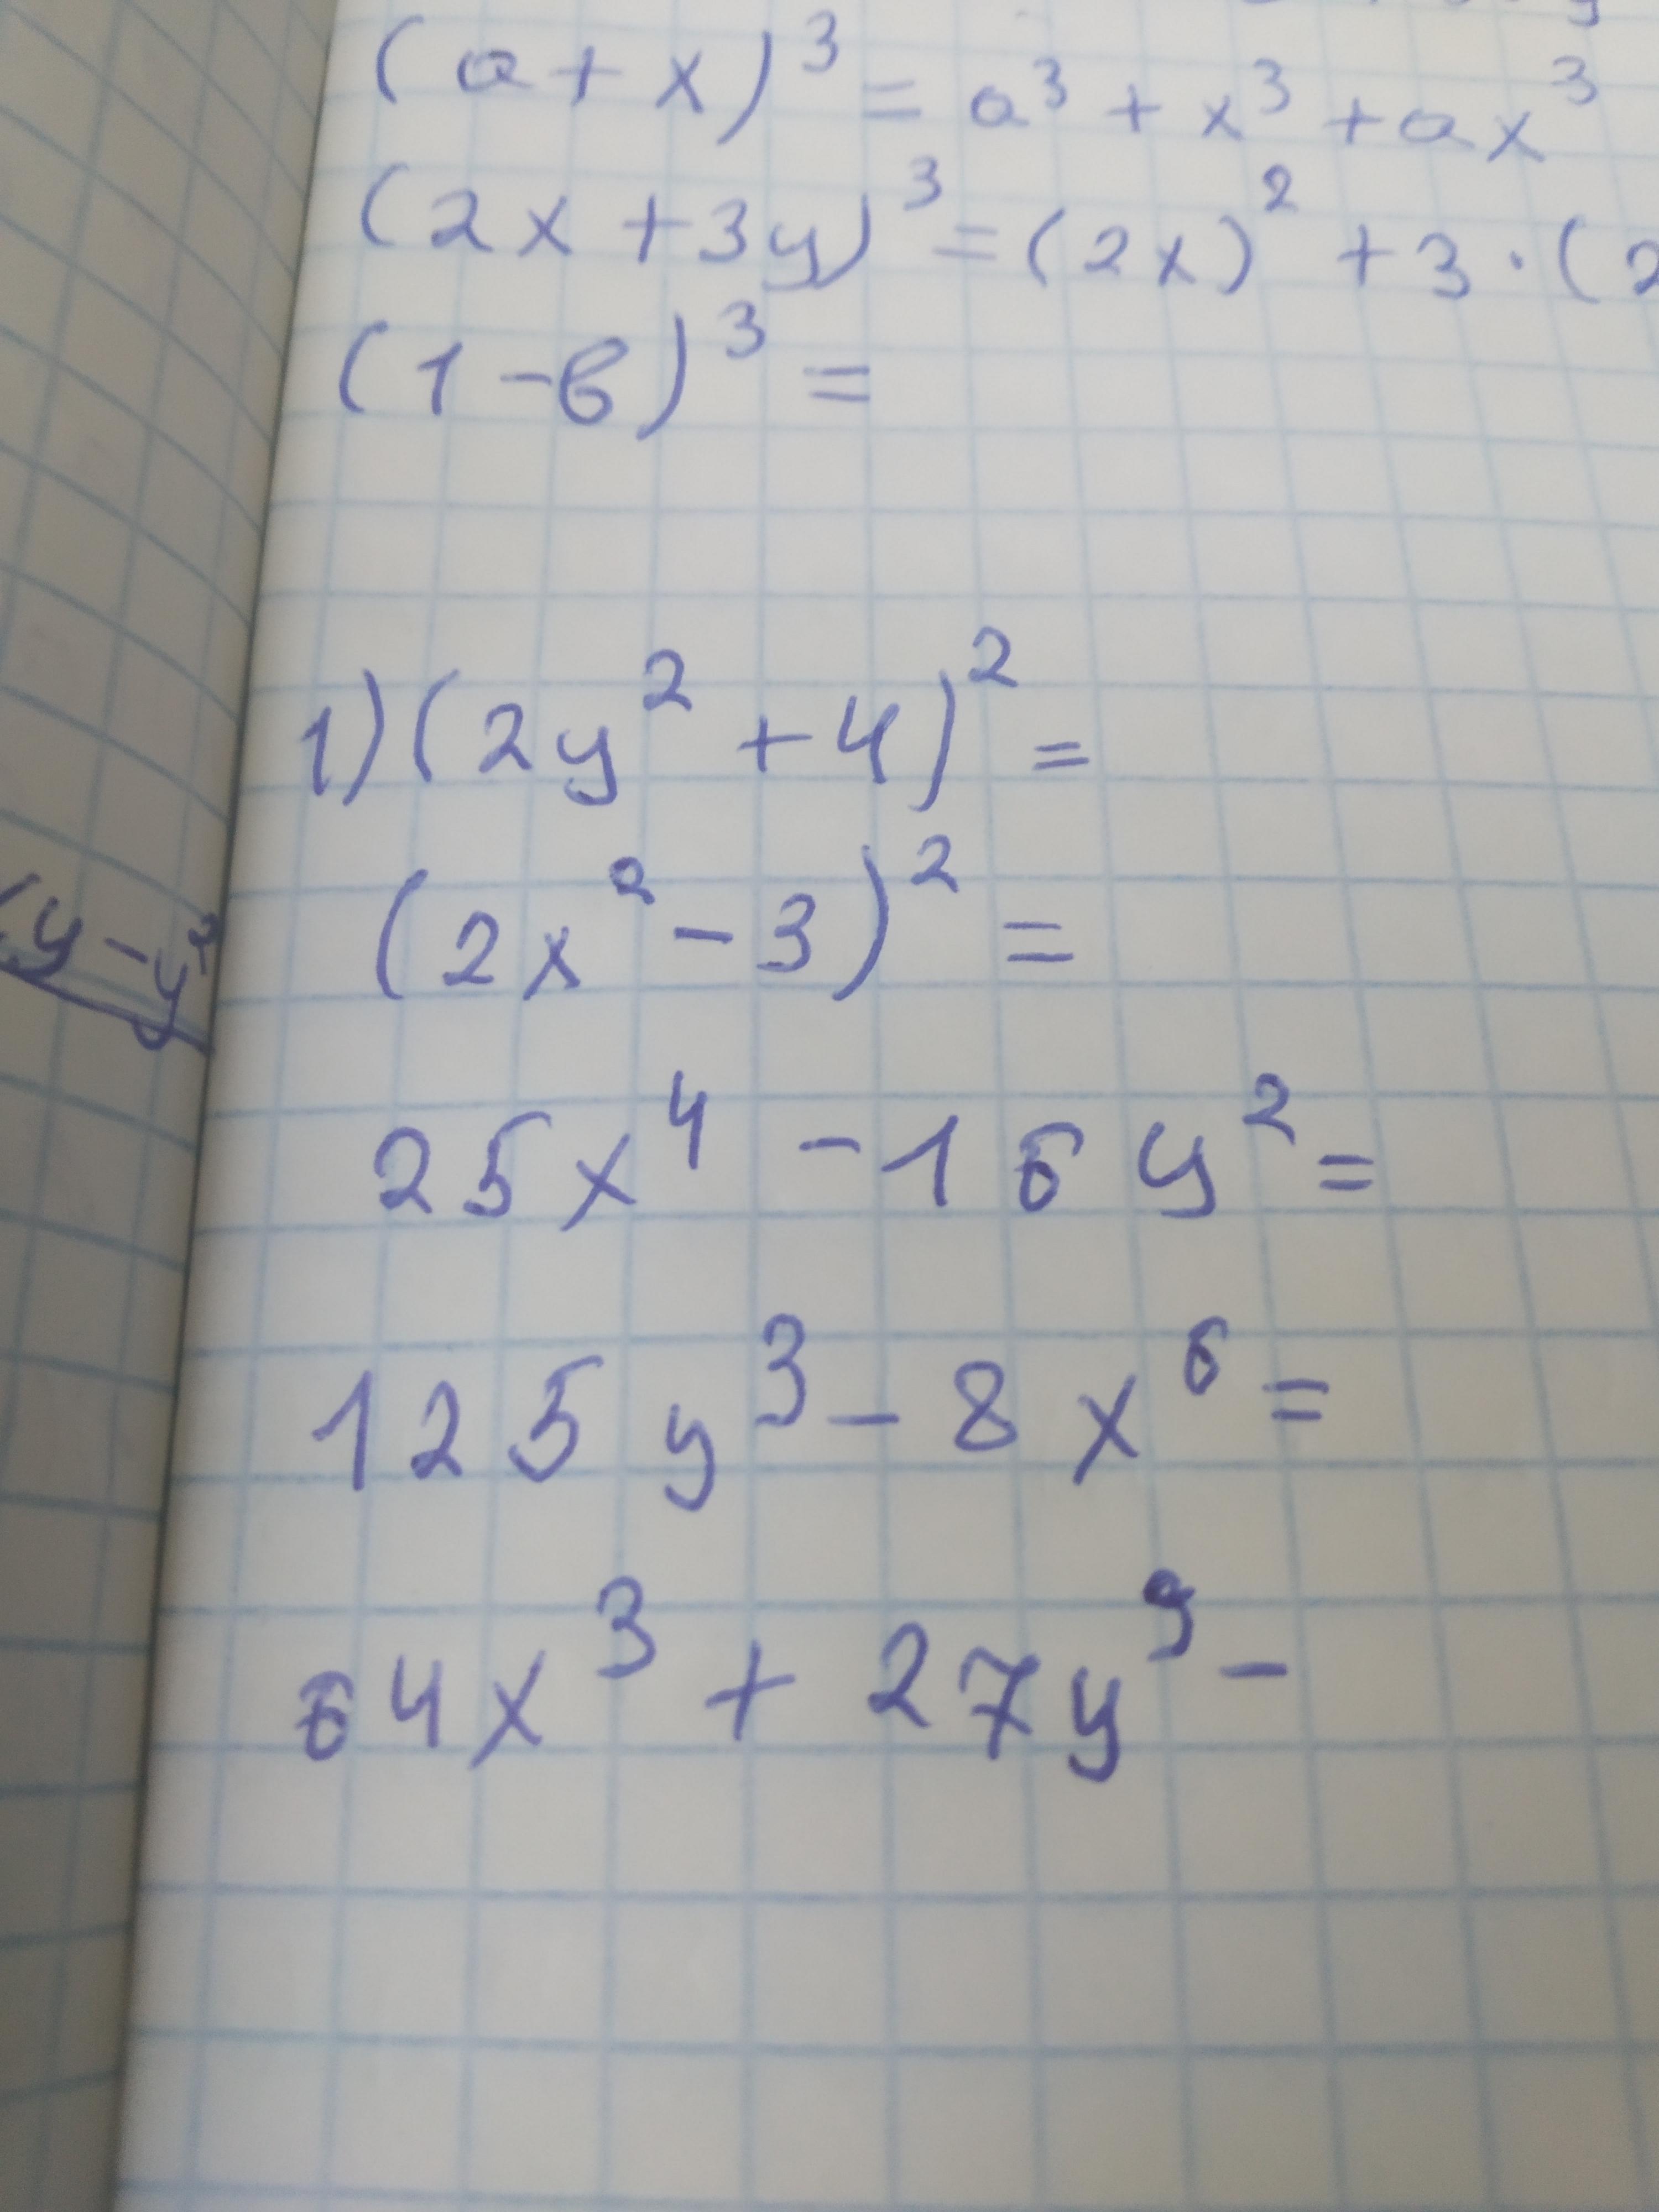 (a + x)³ = a³ + x³ + ax³
(2x + 3y)³ = (2x)² + 3 · (2
(1 - в)³ =
y - y²
1) (2y² + 4)² =
(2x² - 3)² =
25x⁴ - 16y² =
125y³ - 8x⁶ =
64x³ + 27y⁹ -